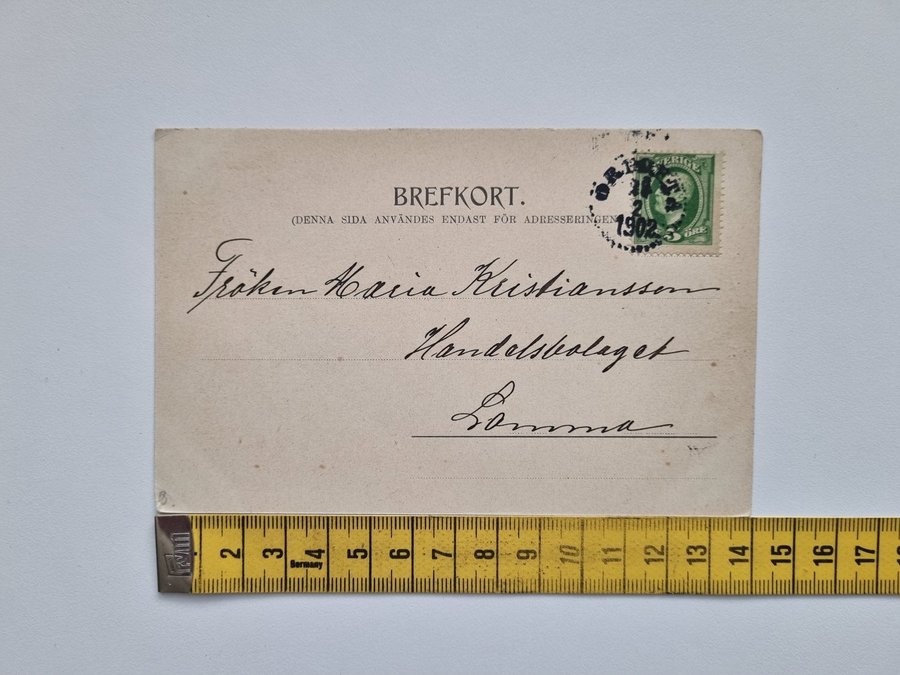 BREFKORT.
(DENNA SIDA ANVÄNDES ENDAST FÖR ADRESSERINGEN
SVERIGE
5 ÖRE
2
1902
Fröken Maria Kristiansson
Handelsbolaget
Lomma
2 3 4 5 6 7 8 9 10 11 12 13 14 15 16 17
Germany